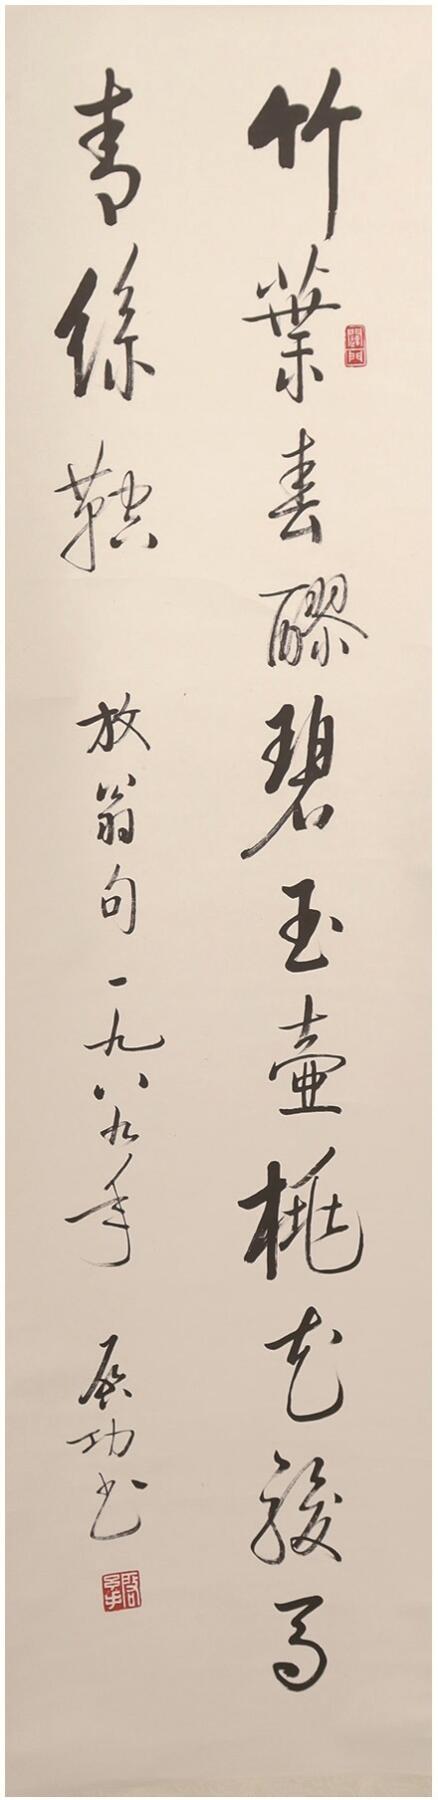 竹葉春醪碧玉壺桃花駿馬
青絲鞚
放翁句一九八九年 启功书